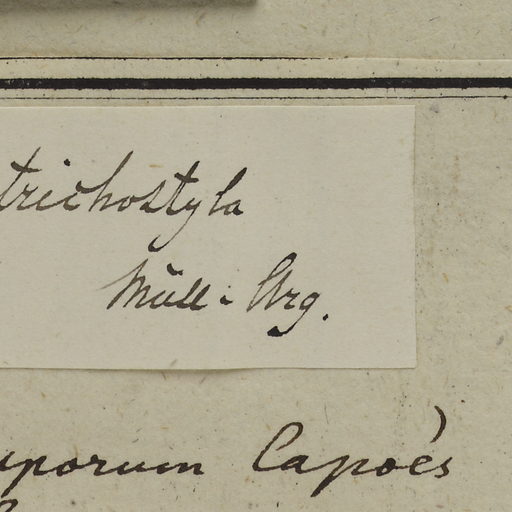 trichostyla
Müll. Arg.
uporum Capoés